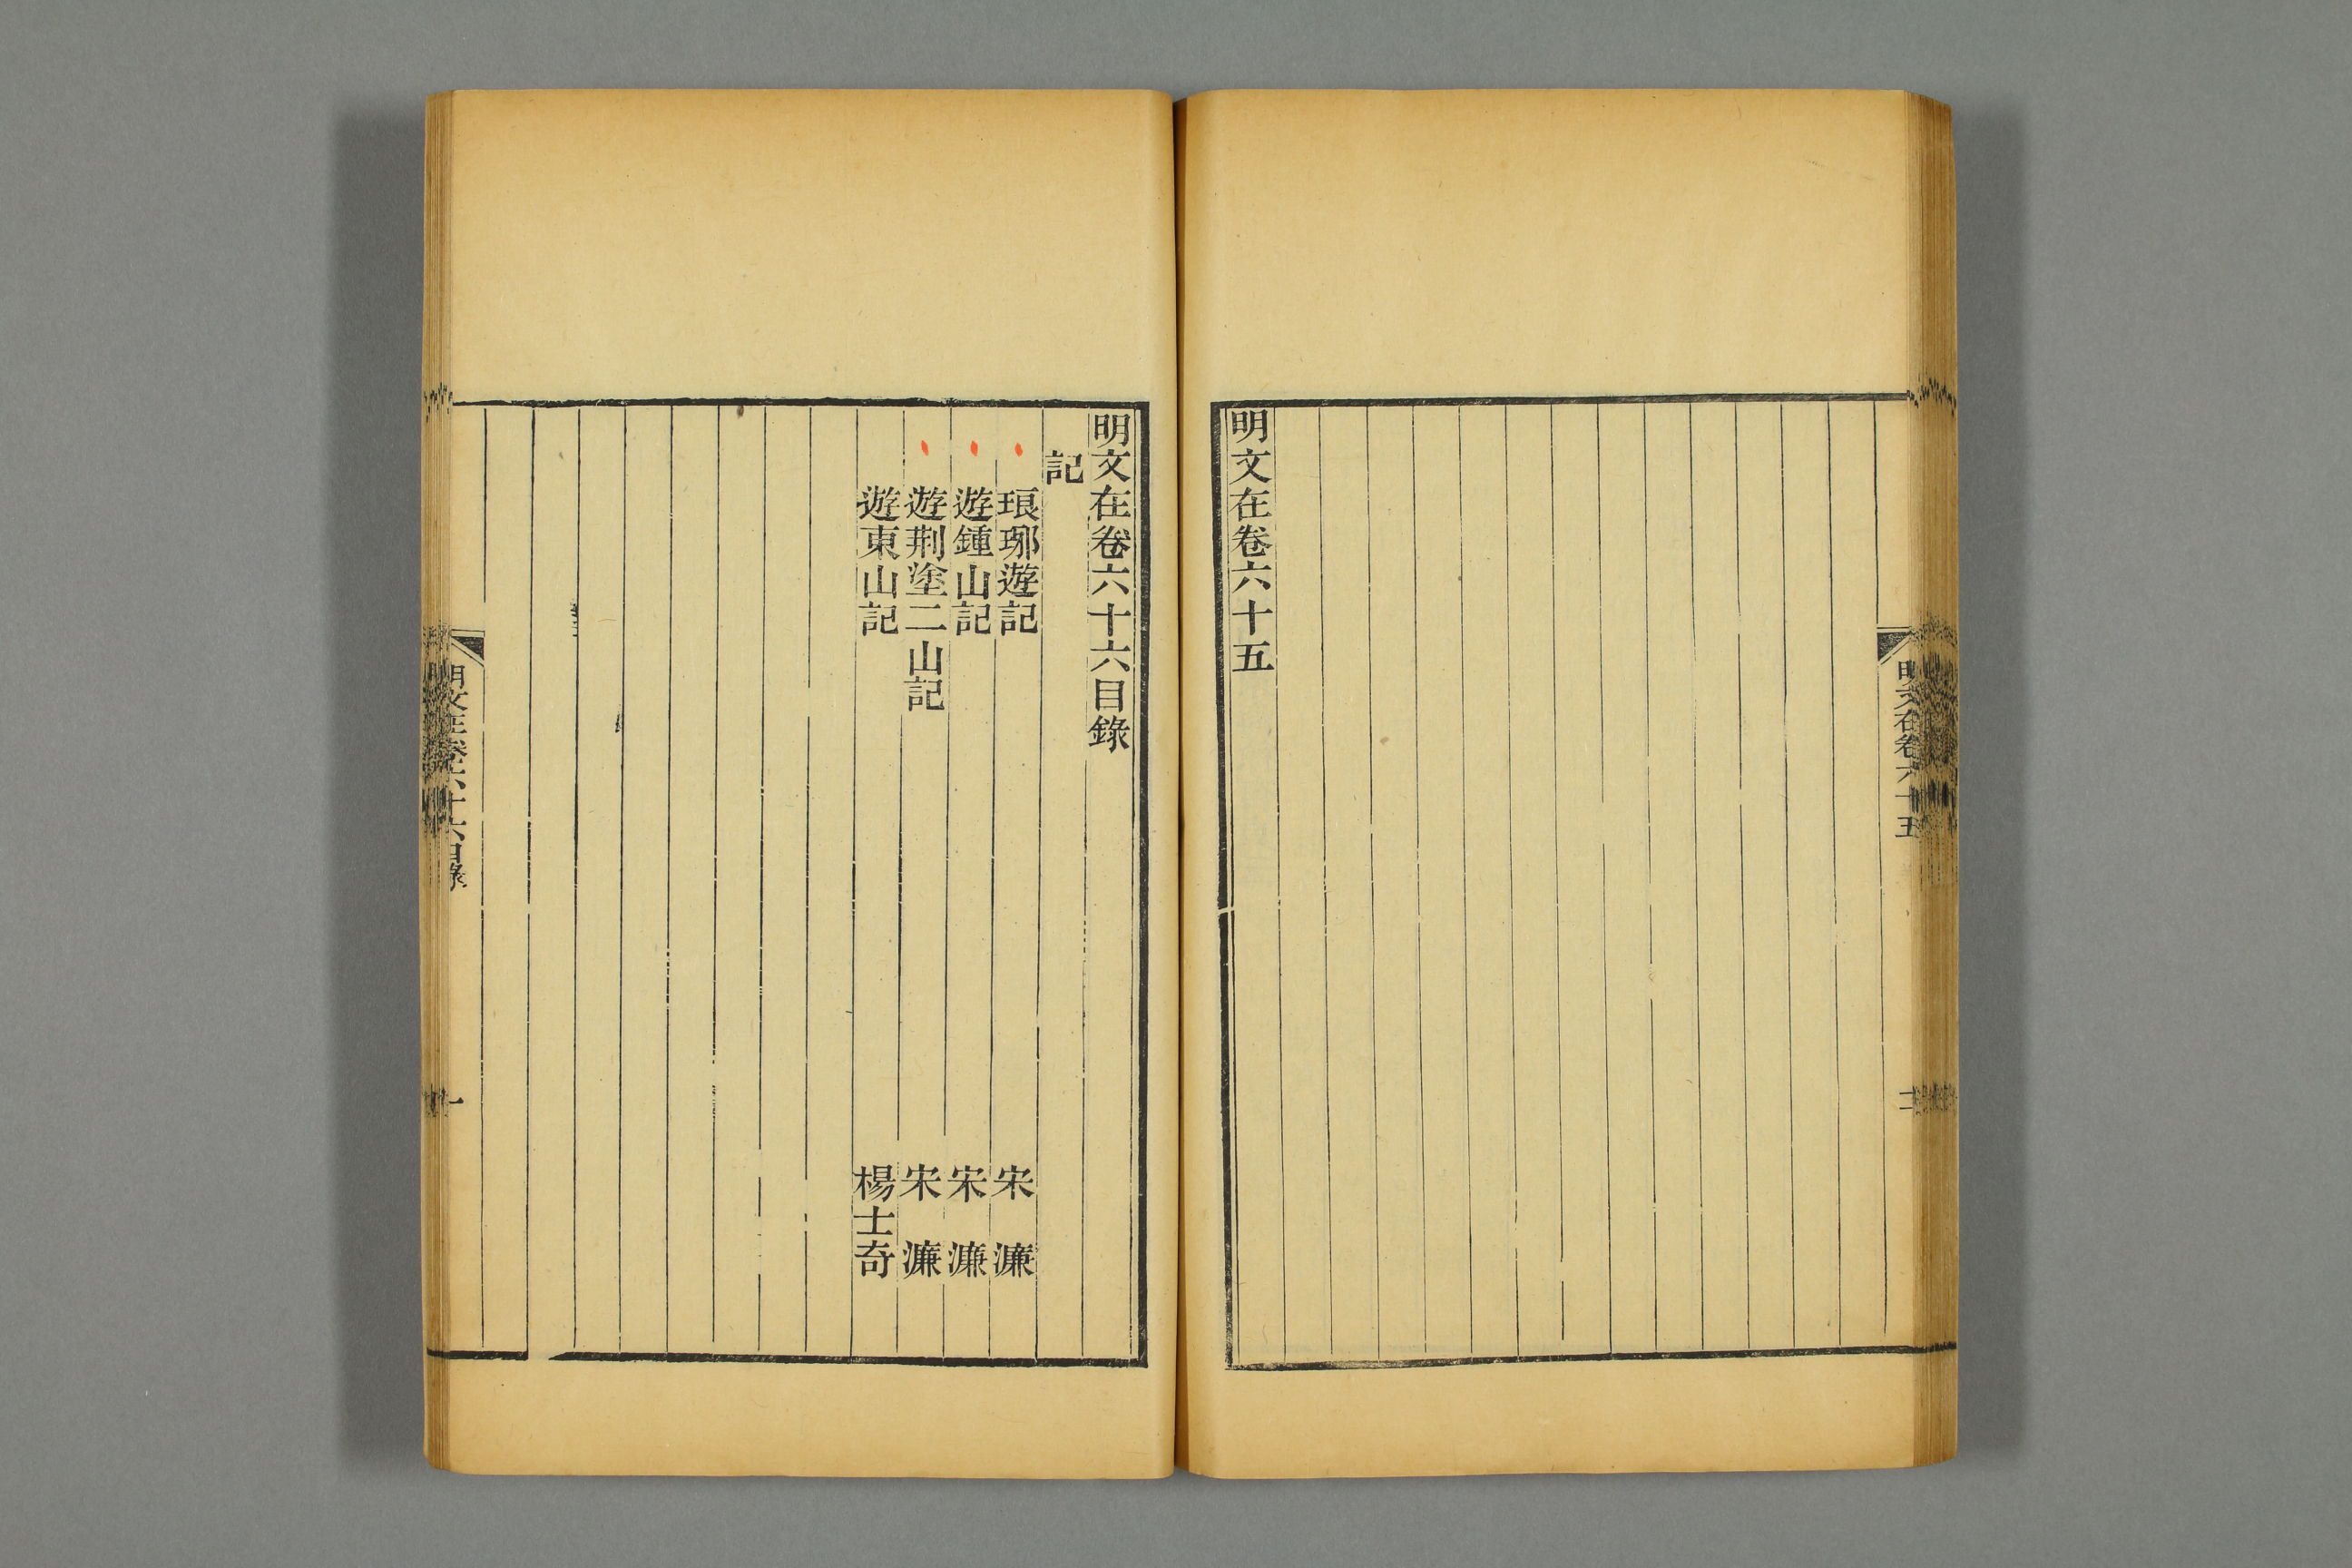 明文在卷六十五
二
明文在卷六十五
明文在卷六十六目錄
記
琅琊遊記　宋濂
遊鍾山記　宋濂
遊荆塗二山記　宋濂
遊東山記　楊士奇
明文在卷六十六目錄
一